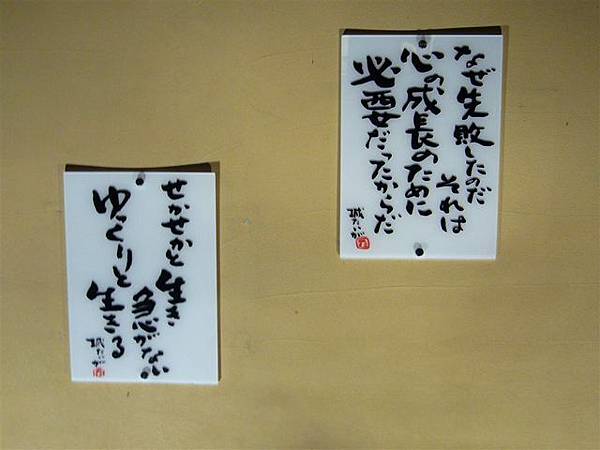 なぜ失敗したのだ
それは
心の成長のために
必要だったからだ
せかせかと生き
急がない
ゆっくりと
生きる